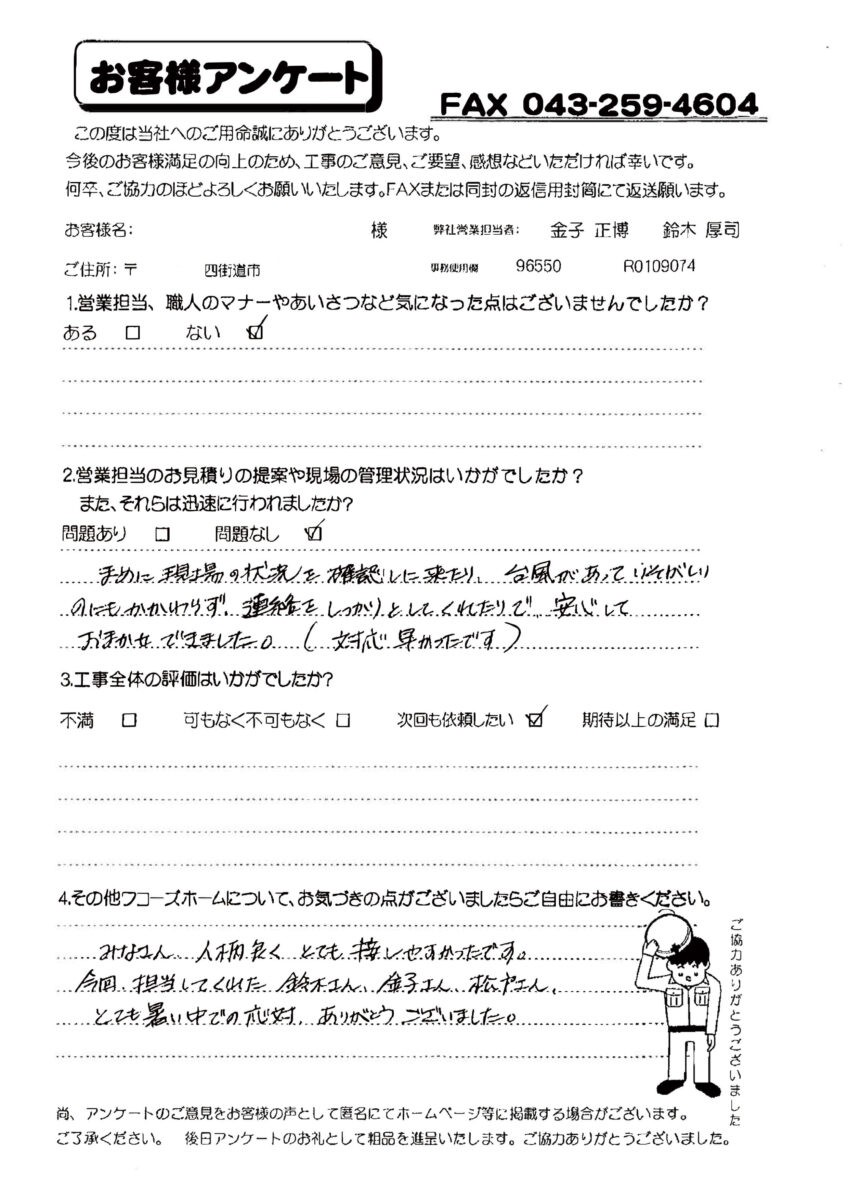 お客様アンケート
FAX 043-259-4604
この度は当社へのご用命誠にありがとうございます。
今後のお客様満足の向上のため、工事のご意見、ご要望、感想などいただければ幸いです。
何卒、ご協力のほどよろしくお願いいたします。FAXまたは同封の返信用封筒にて返送願います。
お客様名: 様 弊社営業担当者: 金子 正博 鈴木 厚司
ご住所:〒 四街道市 事務使用欄 96550 R0109074
1.営業担当、職人のマナーやあいさつなど気になった点はございませんでしたか?
ある □ ない ☑
2.営業担当のお見積りの提案や現場の管理状況はいかがでしたか?
また、それらは迅速に行われましたか?
問題あり □ 問題なし ☑
まめに現場の状況を確認しに来たり、台風があっていそがしい
のにもかかわらず、連絡をしっかりとしてくれたりで、安心して
おまかせできました。(対応早かったです)
3.工事全体の評価はいかがでしたか?
不満 □ 可もなく不可もなく □ 次回も依頼したい ☑ 期待以上の満足 □
4.その他ワコーズホームについて、お気づきの点がございましたらご自由にお書きください。
みなさん、人柄良く とても接しやすかったです。
今回、担当してくれた 鈴木さん、金子さん、
とても暑い中での応対、ありがとうございました。
ご協力ありがとうございました
尚、アンケートのご意見をお客様の声として匿名にてホームページ等に掲載する場合がございます。
ご了承ください。 後日アンケートのお礼として粗品を進呈いたします。ご協力ありがとうございました。